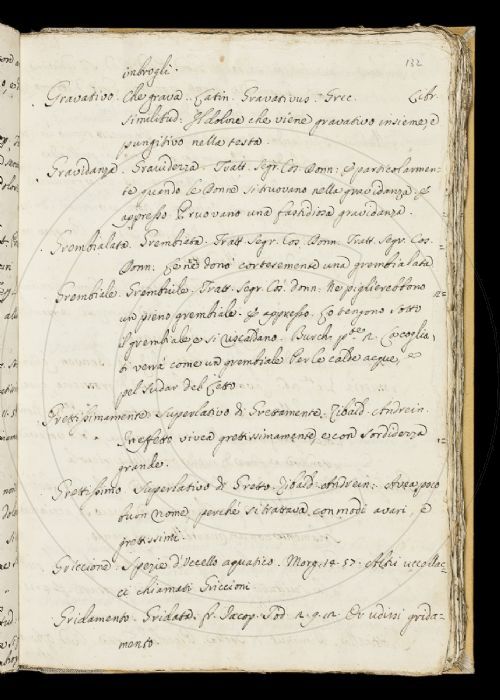 132
imbrogli.
Gravativo. Che grava. Latin. Gravativus. Grec. Libr.
Similitud: Il dolore che viene gravativo insieme, e
pungitivo nella testa.
Gravidanza. Gravidezza. Tratt. Segr. Cos. Donn: E particolarmen-
te quando le Donne si truovano nella gravidanza. E
appresso. Pruovano una fastidiosa gravidanza.
Grembialata. Grembiata. Tratt. Segr. Cos. Donn. Tratt. Segr. Cos.
Donn: donò cortesemente una grembialata
Grembiale. Grembiule. Tratt. Segr. Cos. donn: Ne piglierebbono
un pieno grembiale. E appresso. Lo tengono sotto
il grembiale, e si riscaldano. Burch. p.te 2.
ti verrà come un grembiale Per le calde acque, e
pel sudar del Letto
Grettissimamente. Superlativo di Grettamente. Zibald. Andrein.
In effetto vivea grettissimamente, e con sordidezza
grande.
Grettissimo. Superlativo di Gretto. Zibald. Andrein: Avea poco
buon nome, perchè si trattava con modi avari, e
grettissimi.
Griccione. Spezie d'Uccello aquatico. Morg. 14. 57. Altri uccellac-
ci chiamati Griccioni
Gridamento. Gridata. fr. Jacop. Tod. 2. 9. 12. Or udissi grida-
mento.